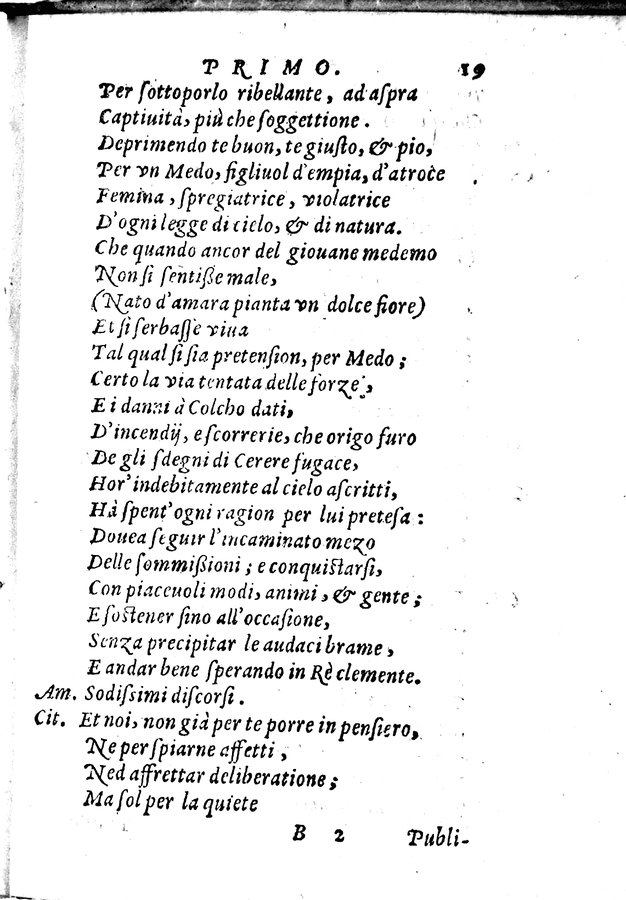 PRIMO. 19
Per ſottoporlo ribellante, ad aſpra
Captiuità, più che ſoggettione.
Deprimendo te buon, te giuſto, & pio,
Per vn Medo, figliuol d'empia, d'atroce
Femina, ſpregiatrice, violatrice
D'ogni legge di cielo, & di natura.
Che quando ancor del giouane medemo
Non ſi ſentiße male,
(Nato d'amara pianta vn dolce fiore)
Et ſi ſerbaſſe viua
Tal qual ſi ſia pretenſion, per Medo;
Certo la via tentata delle forze,
E i danni à Colcho dati,
D'incendij, e ſcorrerie, che origo furo
De gli ſdegni di Cerere fugace,
Hor' indebitamente al cielo aſcritti,
Hà ſpent' ogni ragion per lui preteſa:
Douea ſeguir l'incaminato mezo
Delle ſommißioni; e conquiſtarſi,
Con piaceuoli modi, animi, & gente;
E ſoſtener ſino all'occaſione,
Senza precipitar le audaci brame,
E andar bene ſperando in Rè clemente.
Am. Sodiſsimi diſcorſi.
Cit. Et noi, non già per te porre in penſiero,
Ne per ſpiarne affetti,
Ned affrettar deliberatione;
Ma ſol per la quiete
B 2 Publi-